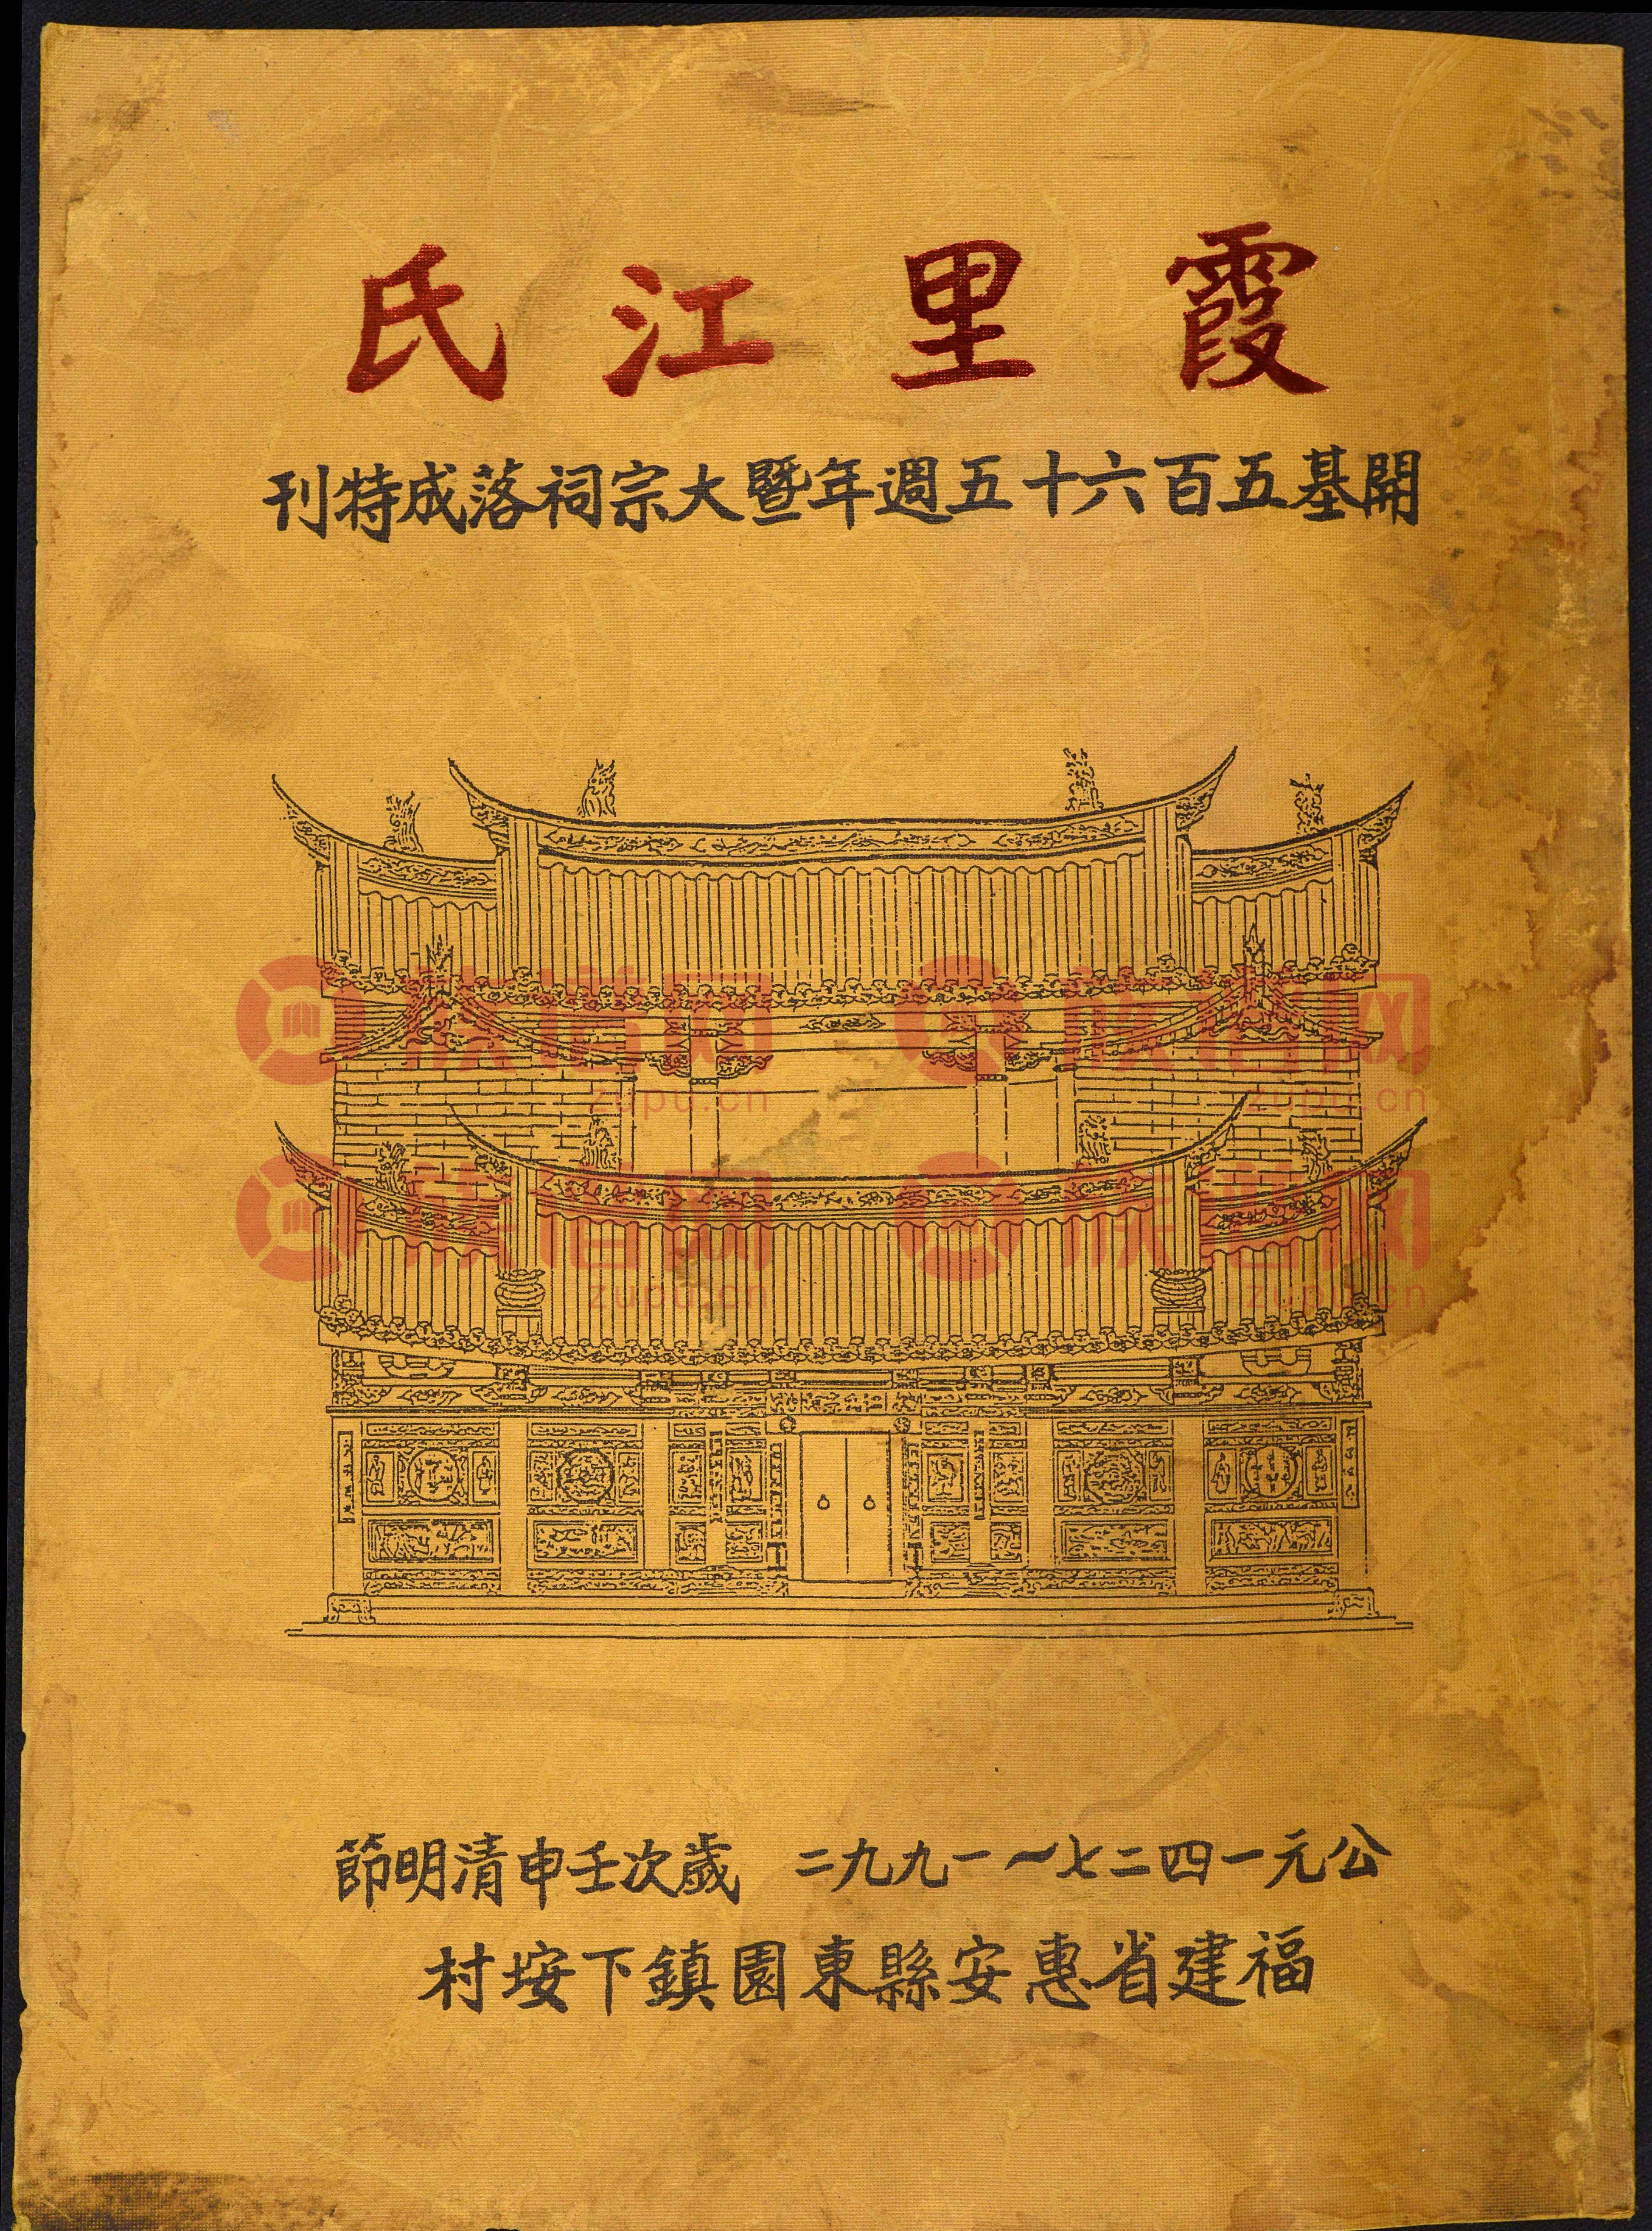 霞里江氏
開基五百六十五週年暨大宗祠落成特刊
族谱网 族谱网
zupu.cn zupu.cn
族谱网 族谱网
zupu.cn zupu.cn
公元一四二七～一九九二 歲次壬申清明節
福建省惠安縣東園鎮下垵村